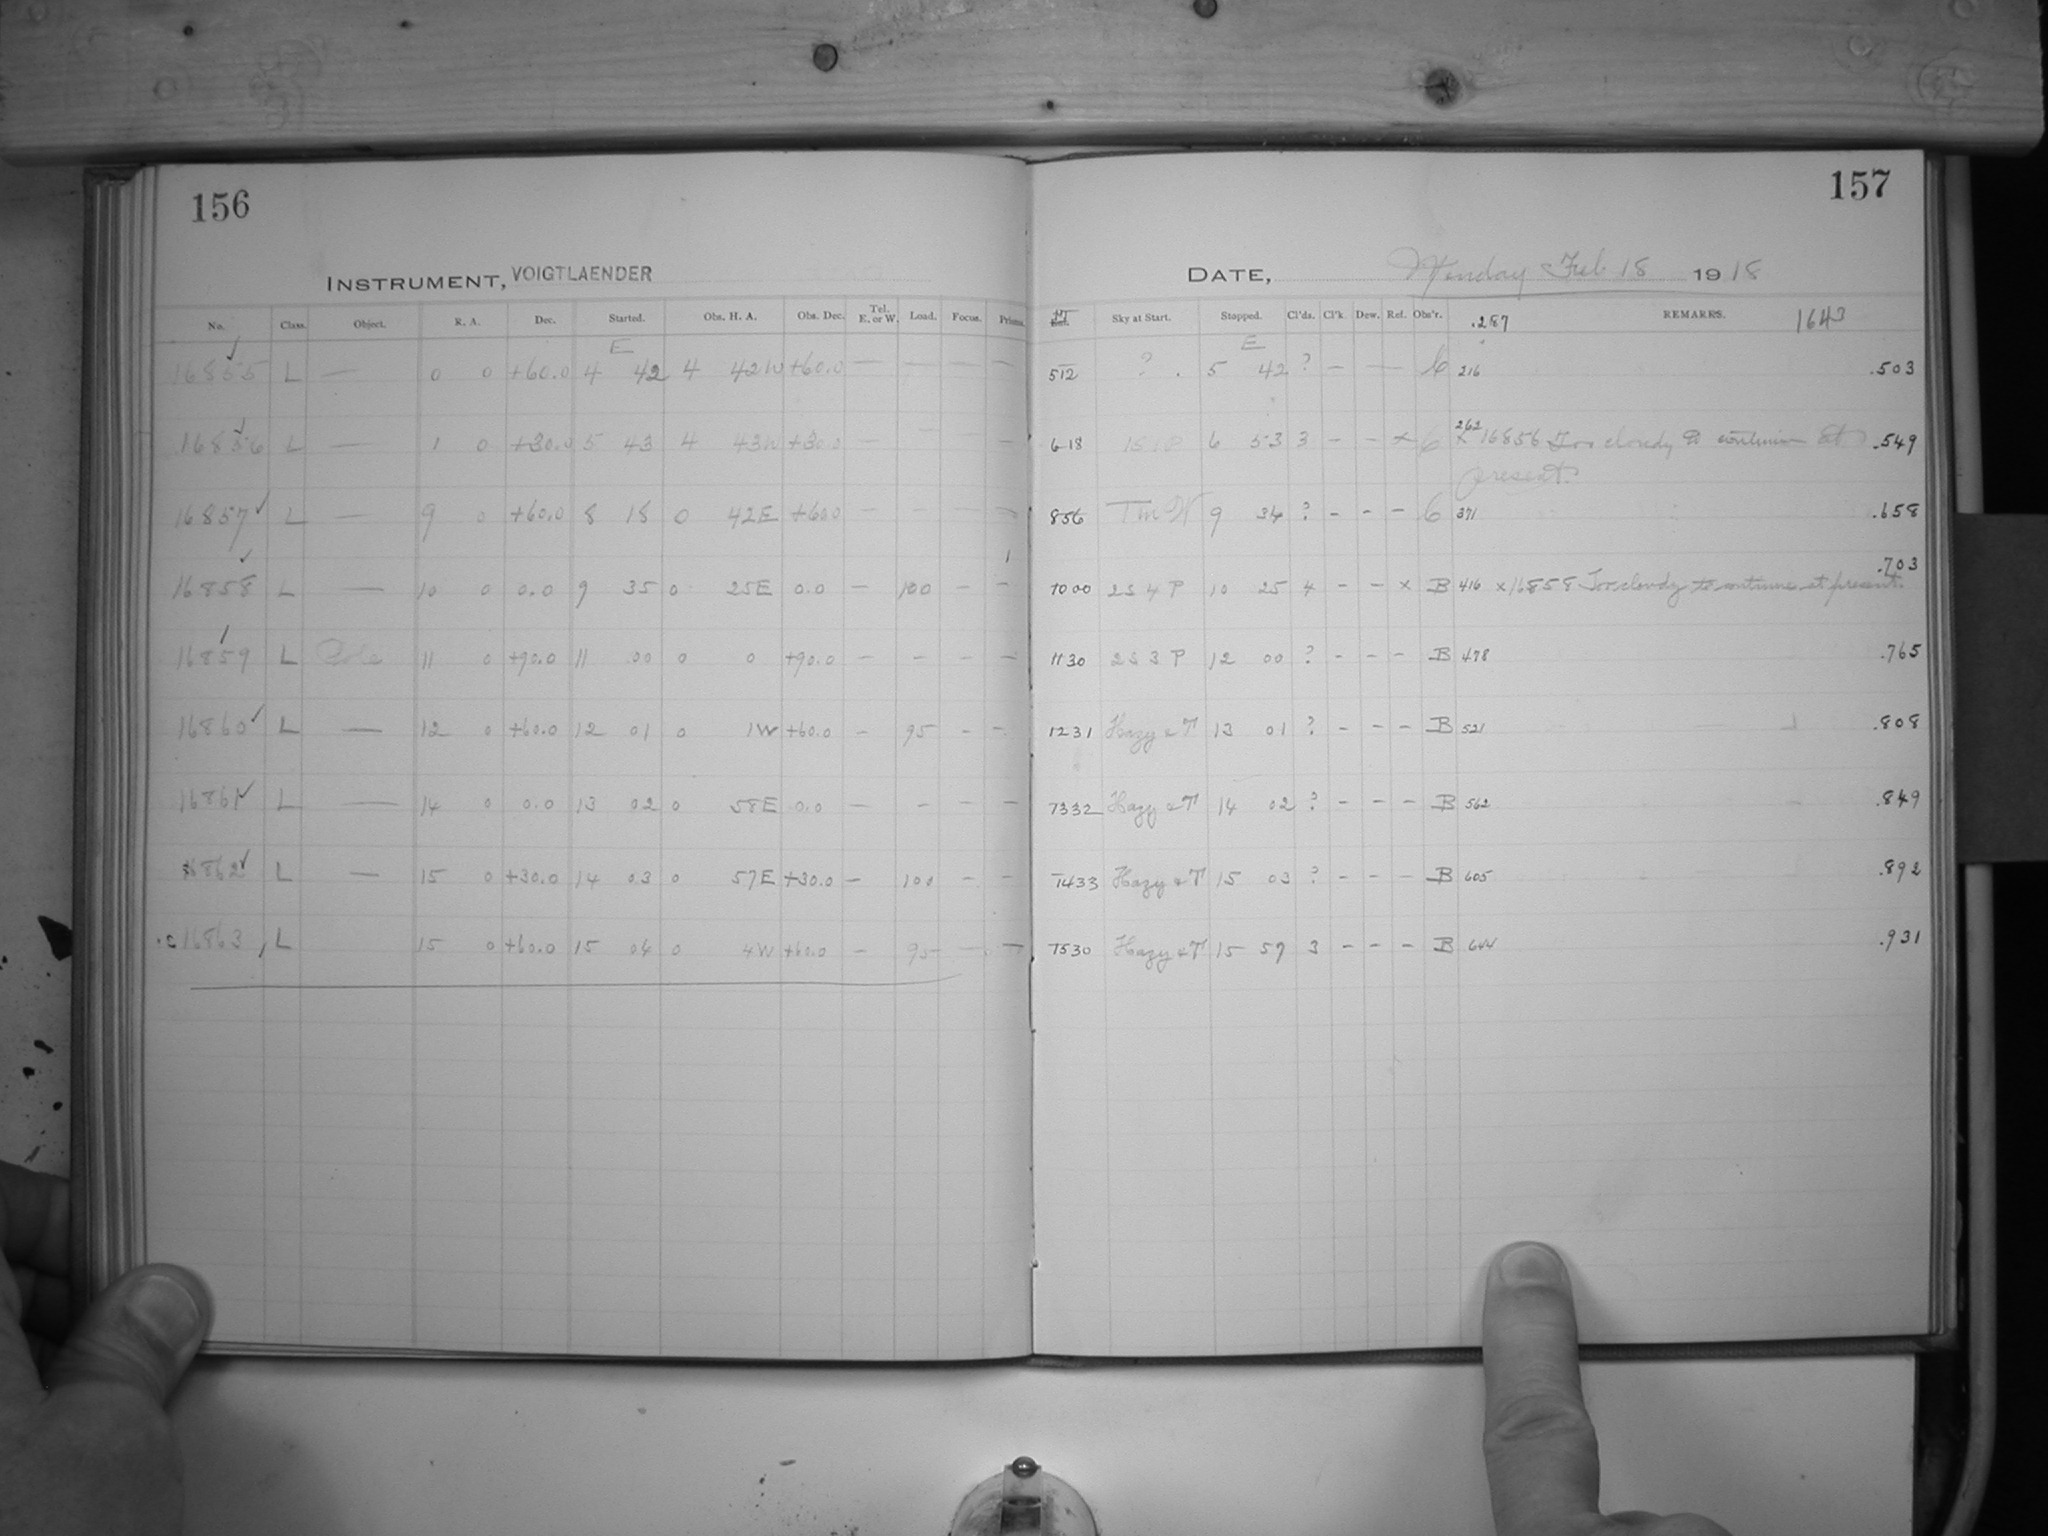 156
157
INSTRUMENT, VOIGTLAENDER
DATE, Monday Feb 18 1918
No. Class. Object. R. A. Dec. Started. Obs. H. A. Obs. Dec. Tel. E. or W. Load. Focus. Prisms. Sky at Start. Stopped. Cl'ds. Cl'k. Dew. Ref. Obs'r. .287 REMARKS. 1643
E E
16855 L — 0 0 +60.0 4 42 4 42W +60.0 — — — — 512 ? . 5 42 ? — — 6 216 .503
16856 L — 1 0 +30.0 5 43 4 43W +30.0 — — — — 618 6 53 3 — — x 6 262 x 16856 Too cloudy to continue at .549
present.
16857 L — 9 0 +60.0 8 18 0 42E +60.0 — — — — 856 9 34 ? — — — 6 371 .658
16858 L — 10 0 0.0 9 35 0 25E 0.0 — 100 — — 1000 2S 4 P 10 25 4 — — x B 416 x 16858 Too cloudy to continue at present. .703
16859 L Pole 11 0 +90.0 11 00 0 0 +90.0 — — — — 1130 2S 3 P 12 00 ? — — — B 478 .765
16860 L — 12 0 +60.0 12 01 0 1W +60.0 — 95 — — 1231 Hazy & T 13 01 ? — — — B 521 .808
16861 L — 14 0 0.0 13 02 0 58E 0.0 — — — — 1332 Hazy & T 14 02 ? — — — B 562 .849
16862 L — 15 0 +30.0 14 03 0 57E +30.0 — 100 — — 1433 Hazy & T 15 03 ? — — — B 605 .892
16863 L 15 0 +60.0 15 04 0 4W +60.0 — 95 — — 1530 Hazy & T 15 57 3 — — — B 644 .931